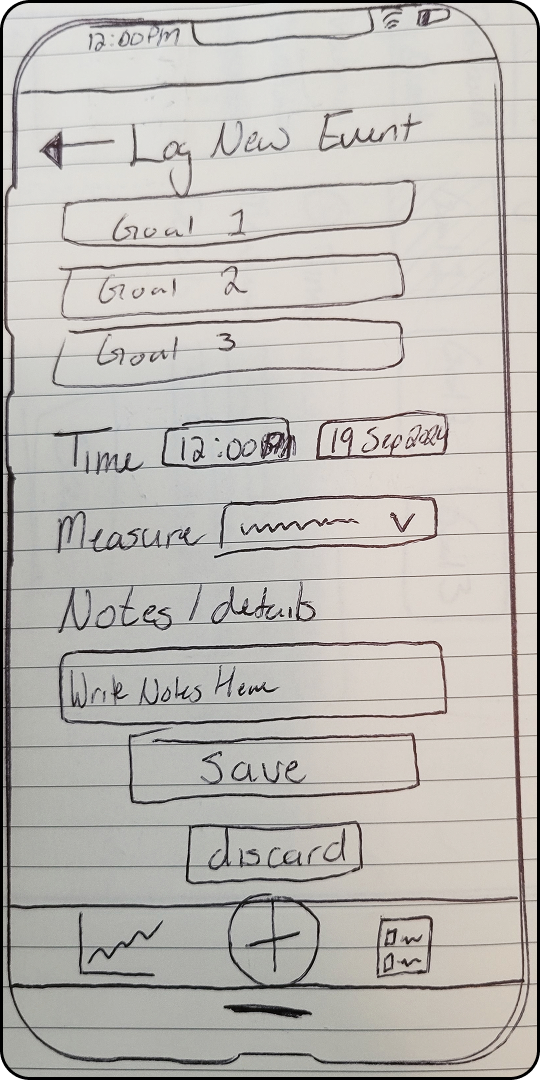 12:00PM
Log New Event
Goal 1
Goal 2
Goal 3
Time 12:00Pm 19 Sep 2024
Measure
Notes / details
Write Notes Here
Save
discard